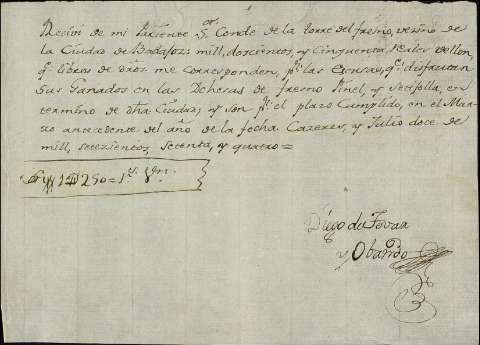 Recivi de mi Pariente Sor. Conde de la torre del fresno, vezino de
la Ciudad de Badajoz mill, doscientos, y Cinquenta reales vellon,
qe. libras de dros me corresponden, pr. las qe. disfrutan
sus Ganados en las Dehesas de fresno, en
termino de dha Ciudad; y son pr. el plazo Cumplido, en el Mar-
zo antecedente del año de la fecha Cazeres, y Julio doce de
mill, setezientos, setenta, y quatro=
1250= rs. vn.
Diego de Tovar
y Obando